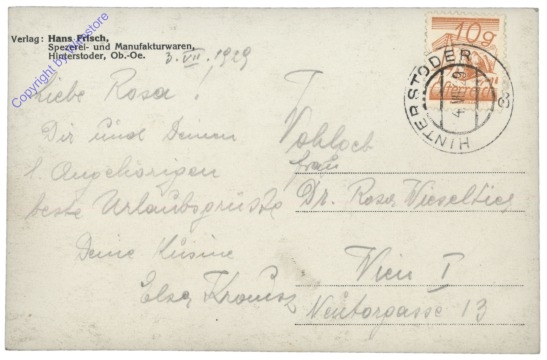 Verlag: Hans Frisch,
Spezerei- und Manufakturwaren,
Hinterstoder, Ob.-Oe.
Copyright by
3. VII. 1929
Liebe Rosa!
Dir und Deinen
l. Angehörigen
beste Urlaubsgrüsse
Deine Kusine
Elsa
10g
HINTERSTODER
Frau
Dr. Rosa
Wien I
Neutorgasse 13